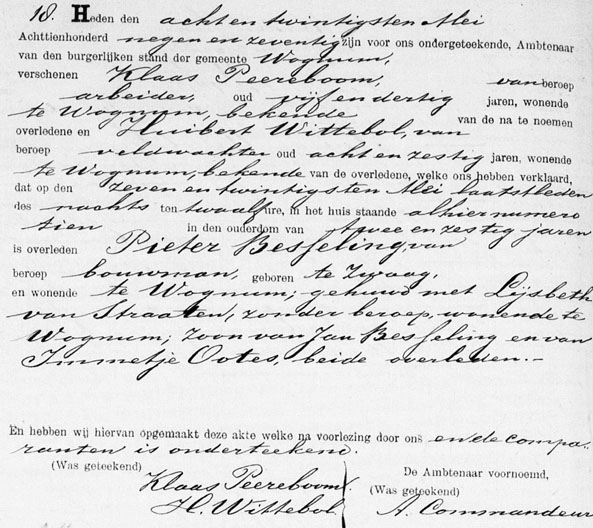 18. Heden den acht en twintigsten Mei
Achttienhonderd negen en zeventig zijn voor ons ondergeteekende, Ambtenaar
van den burgerlijken stand der gemeente Wognum,
verschenen Klaas Peereboom, van beroep
arbeider, oud vijf en dertig jaren, wonende
te Wognum, bekende van de na te noemen
overledene en Huibert Wittebol, van
beroep veldwachter oud acht en zestig jaren, wonende
te Wognum, bekende van de overledene, welke ons hebben verklaard,
dat op den zeven en twintigsten Mei laatstleden
des nachts ten twaalf ure, in het huis staande alhier numero
tien in den ouderdom van twee en zestig jaren
is overleden Pieter Besseling, van
beroep bouwman, geboren te Zwaag,
en wonende te Wognum; gehuwd met Lijsbeth
van Straaten, zonder beroep, wonende te
Wognum; zoon van Jan Besseling en van
Immetje Ootes, beide overleden.-
En hebben wij hiervan opgemaakt deze akte welke na voorlezing door ons en de compa-
ranten is onderteekend.
(Was geteekend)
Klaas Peereboom.
H. Wittebol
De Ambtenaar voornoemd,
(Was geteekend)
A. Commandeur